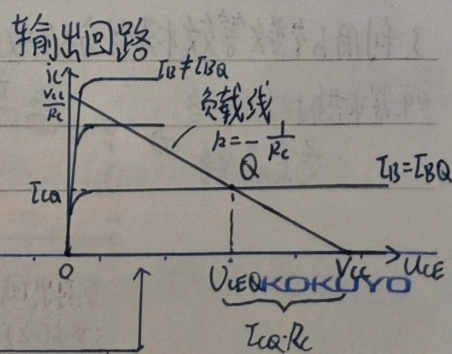 输出回路
iC
VCC/RC
IB≠IBQ
负载线
k=-1/RC
Q
ICQ
IB=IBQ
O
UCEQ
KOKUYO
VCC
UCE
ICQ·RC